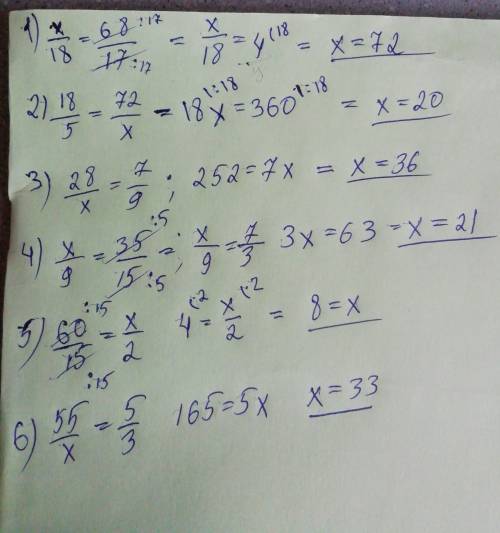 1) x/18 = 68:17/17:17 = x/18 = 4 (·18 = x = 72
2) 18/5 = 72/x - 18x = 360 |:18 |:18 = x = 20
3) 28/x = 7/9 ; 252 = 7x = x = 36
4) x/9 = 35:5/15:5 = ; x/9 = 7/3 3x = 63 - x = 21
5) 60:15/15:15 = x/2 4 (·2 = x/2 (·2 = 8 = x
6) 55/x = 5/3 165 = 5x x = 33